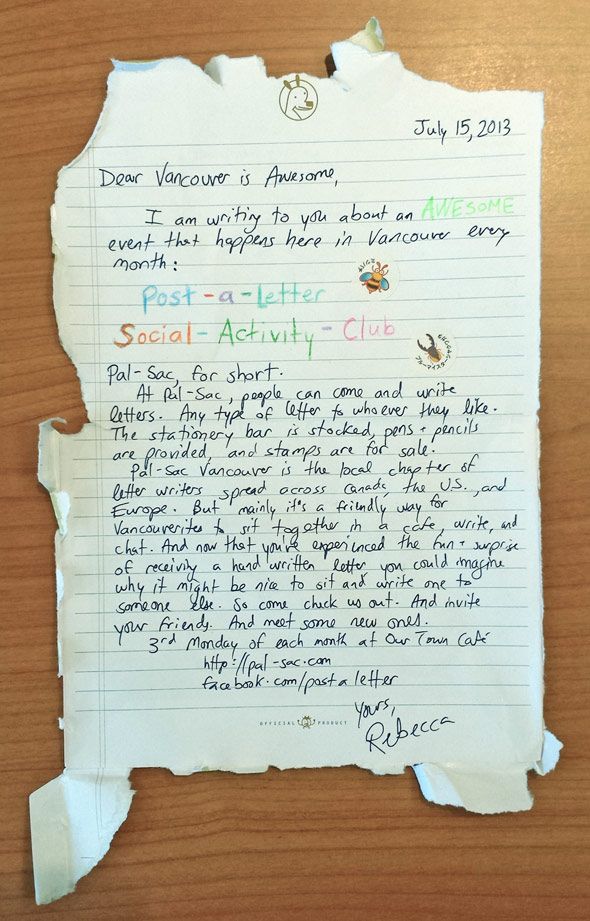 July 15, 2013
Dear Vancouver is Awesome,
I am writing to you about an AWESOME
event that happens here in Vancouver every
month:
Post-a-Letter
Social-Activity-Club
Pal-Sac, for short.
At Pal-Sac, people can come and write
letters. Any type of letter to whoever they like.
The stationery bar is stocked, pens + pencils
are provided, and stamps are for sale.
Pal-Sac Vancouver is the local chapter of
letter writers spread across Canada, the U.S., and
Europe. But mainly it's a friendly way for
Vancouverites to sit together in a cafe, write, and
chat. And now that you've experienced the fun + surprise
of receiving a hand written letter you could imagine
why it might be nice to sit and write one to
someone else. So come check us out. And invite
your friends. And meet some new ones.
3rd Monday of each month at Our Town Café
http://pal-sac.com
facebook.com/postaletter
Yours,
Rebecca
OFFICIAL PRODUCT